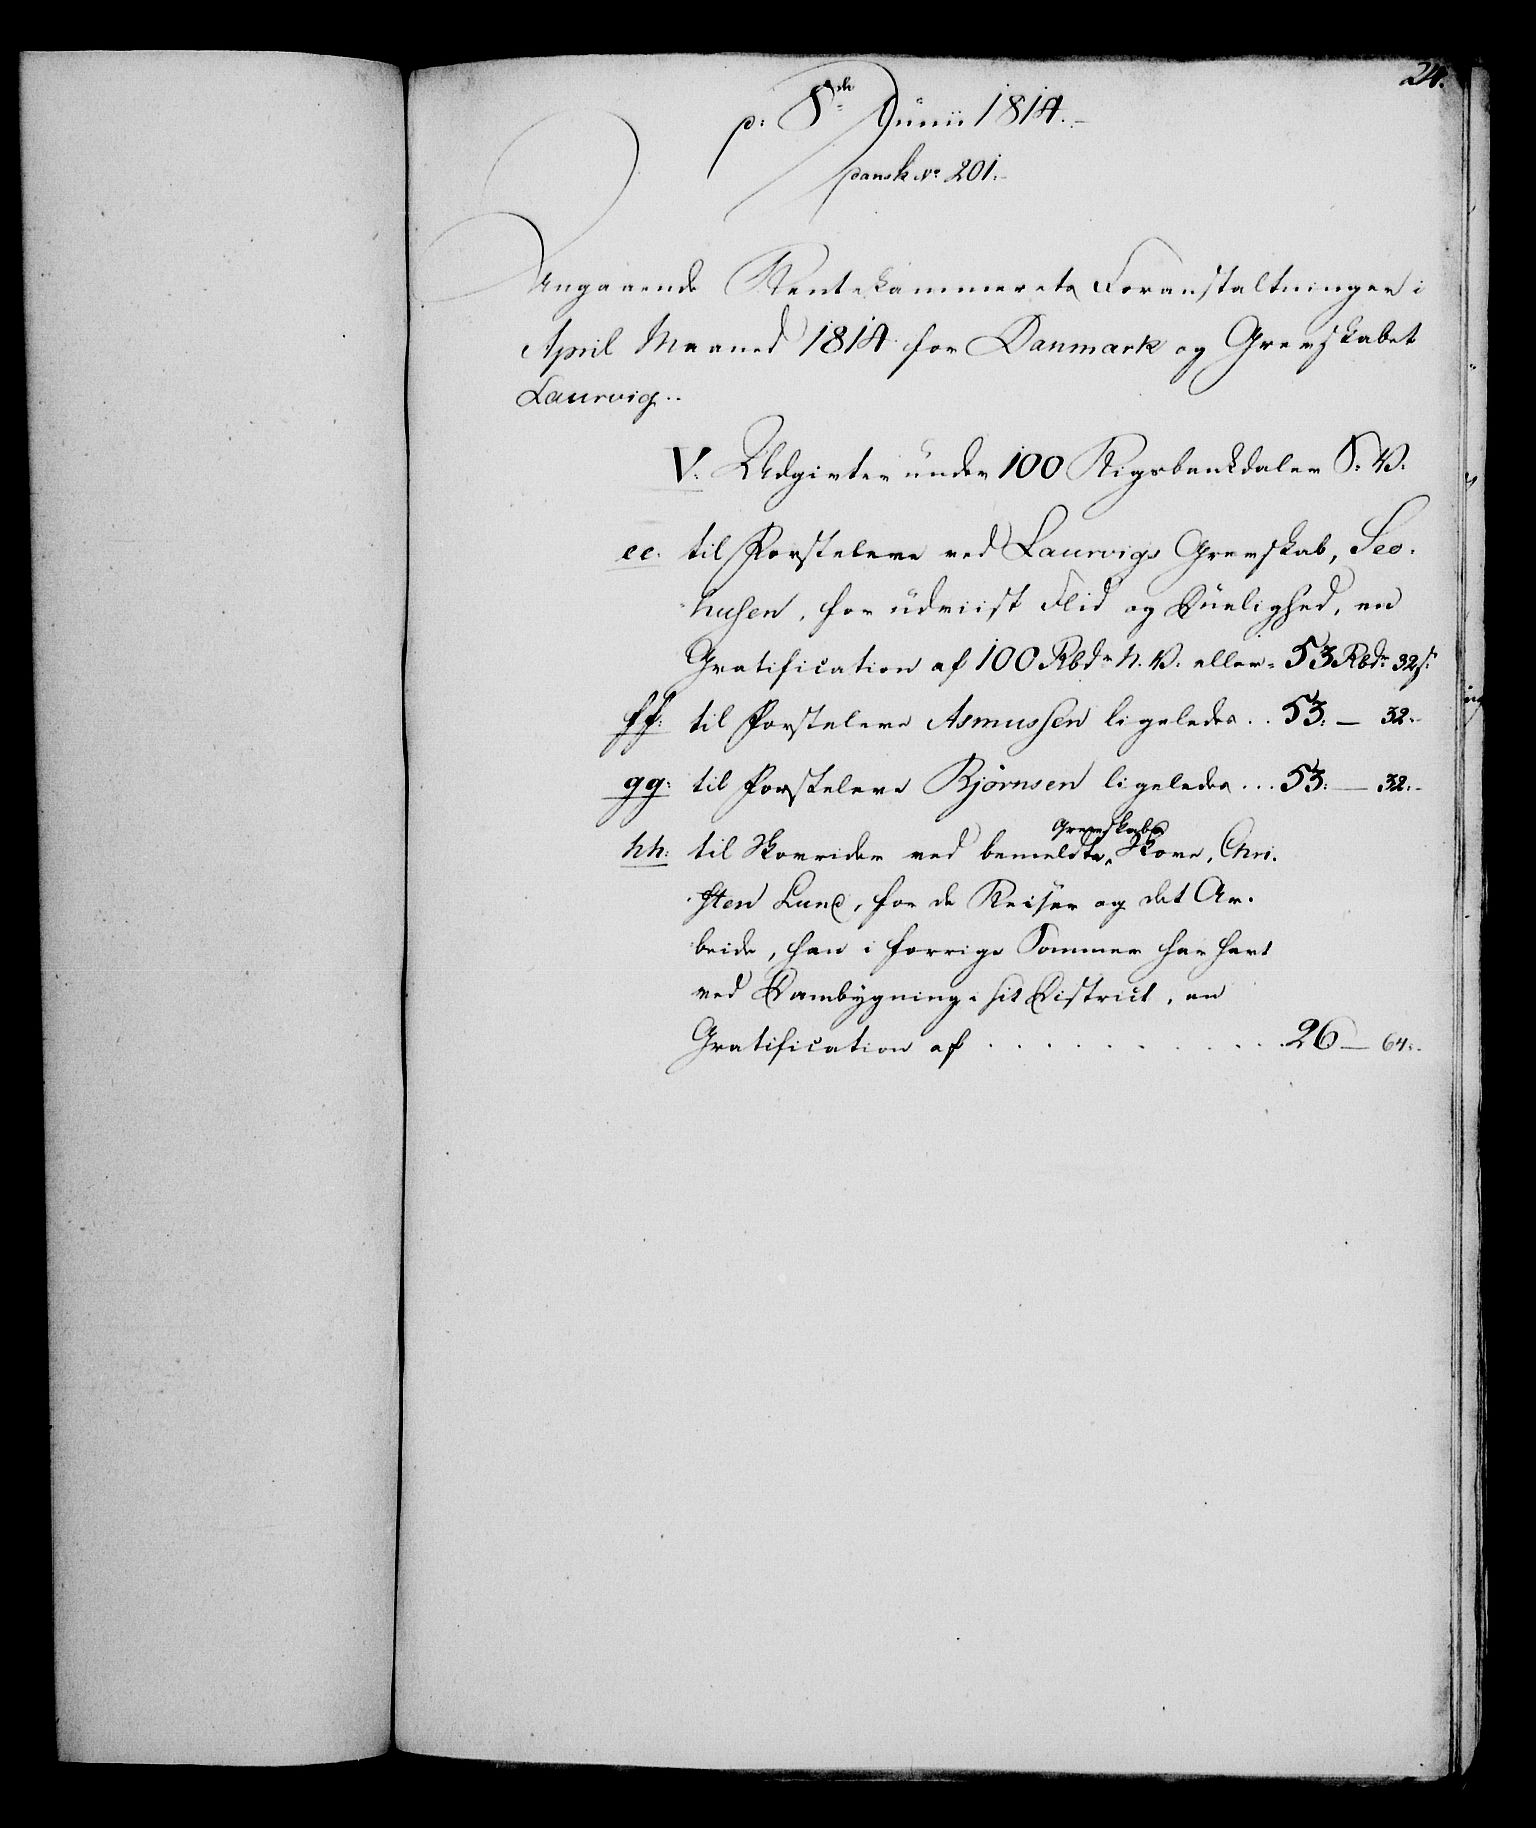 24.
p: 8de Junii 1814.
dansk No 201.
Angaaende Rentekammerets Foranstaltninger i
April Maaned 1814 for Danmark og Grevskabet
Laurvig.
V. Udgivter under 100 Rigsbankdaler S. V.
ee. til Forsteleve ved Laurvigs Grevskab, Seo-
husen, for udviist Flid og Duelighed, en
Gratification af 100 Rbdr N. V. eller 53 Rbdr 32 s.
ff. til Forstelever Asmussen ligeledes .. 53. — 32.
gg. til Forstelever Bjørnsen ligeledes ... 53. — 32.
hh. til Skovrider ved bemeldte Grevskabs Skove, Chri-
sten Lund, for de Reiser og det Ar-
beide, han i forrige Sommer har havt
ved Dambygning i sit District, en
Gratification af . . . . . . . . . . . 26 — 64.